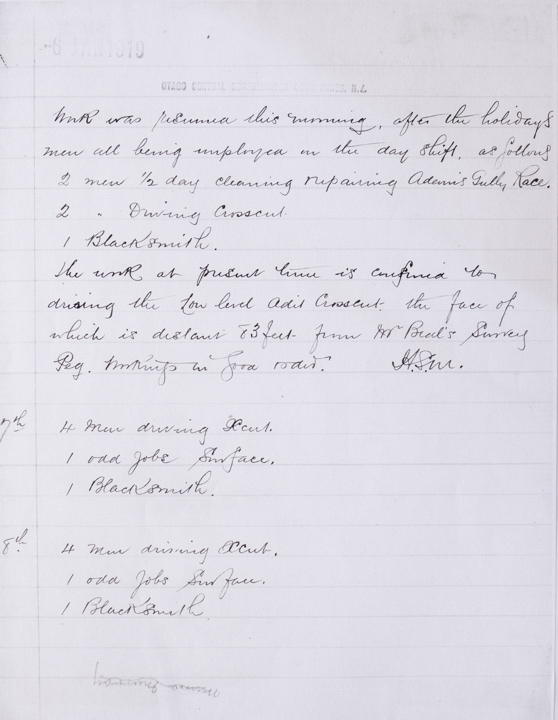 -6 JAN 1919
OTAGO CENTRAL N.Z.
Work was resumed this morning, after the holidays
men all being employed on the day shift. as follows
2 men 1/2 day cleaning repairing Adam's Gully Race.
2 " Driving Crosscut.
1 Blacksmith.
The work at present time is confined to
driving the Low level Adit Crosscut. the face of
which is distant 83 feet from Mr Beal's Survey
Peg. Workings in good order. H.S.M.
7th 4 Men driving Xcut.
1 odd Jobs Surface.
1 Blacksmith.
8th 4 Men driving Xcut.
1 odd Jobs Surface.
1 Blacksmith